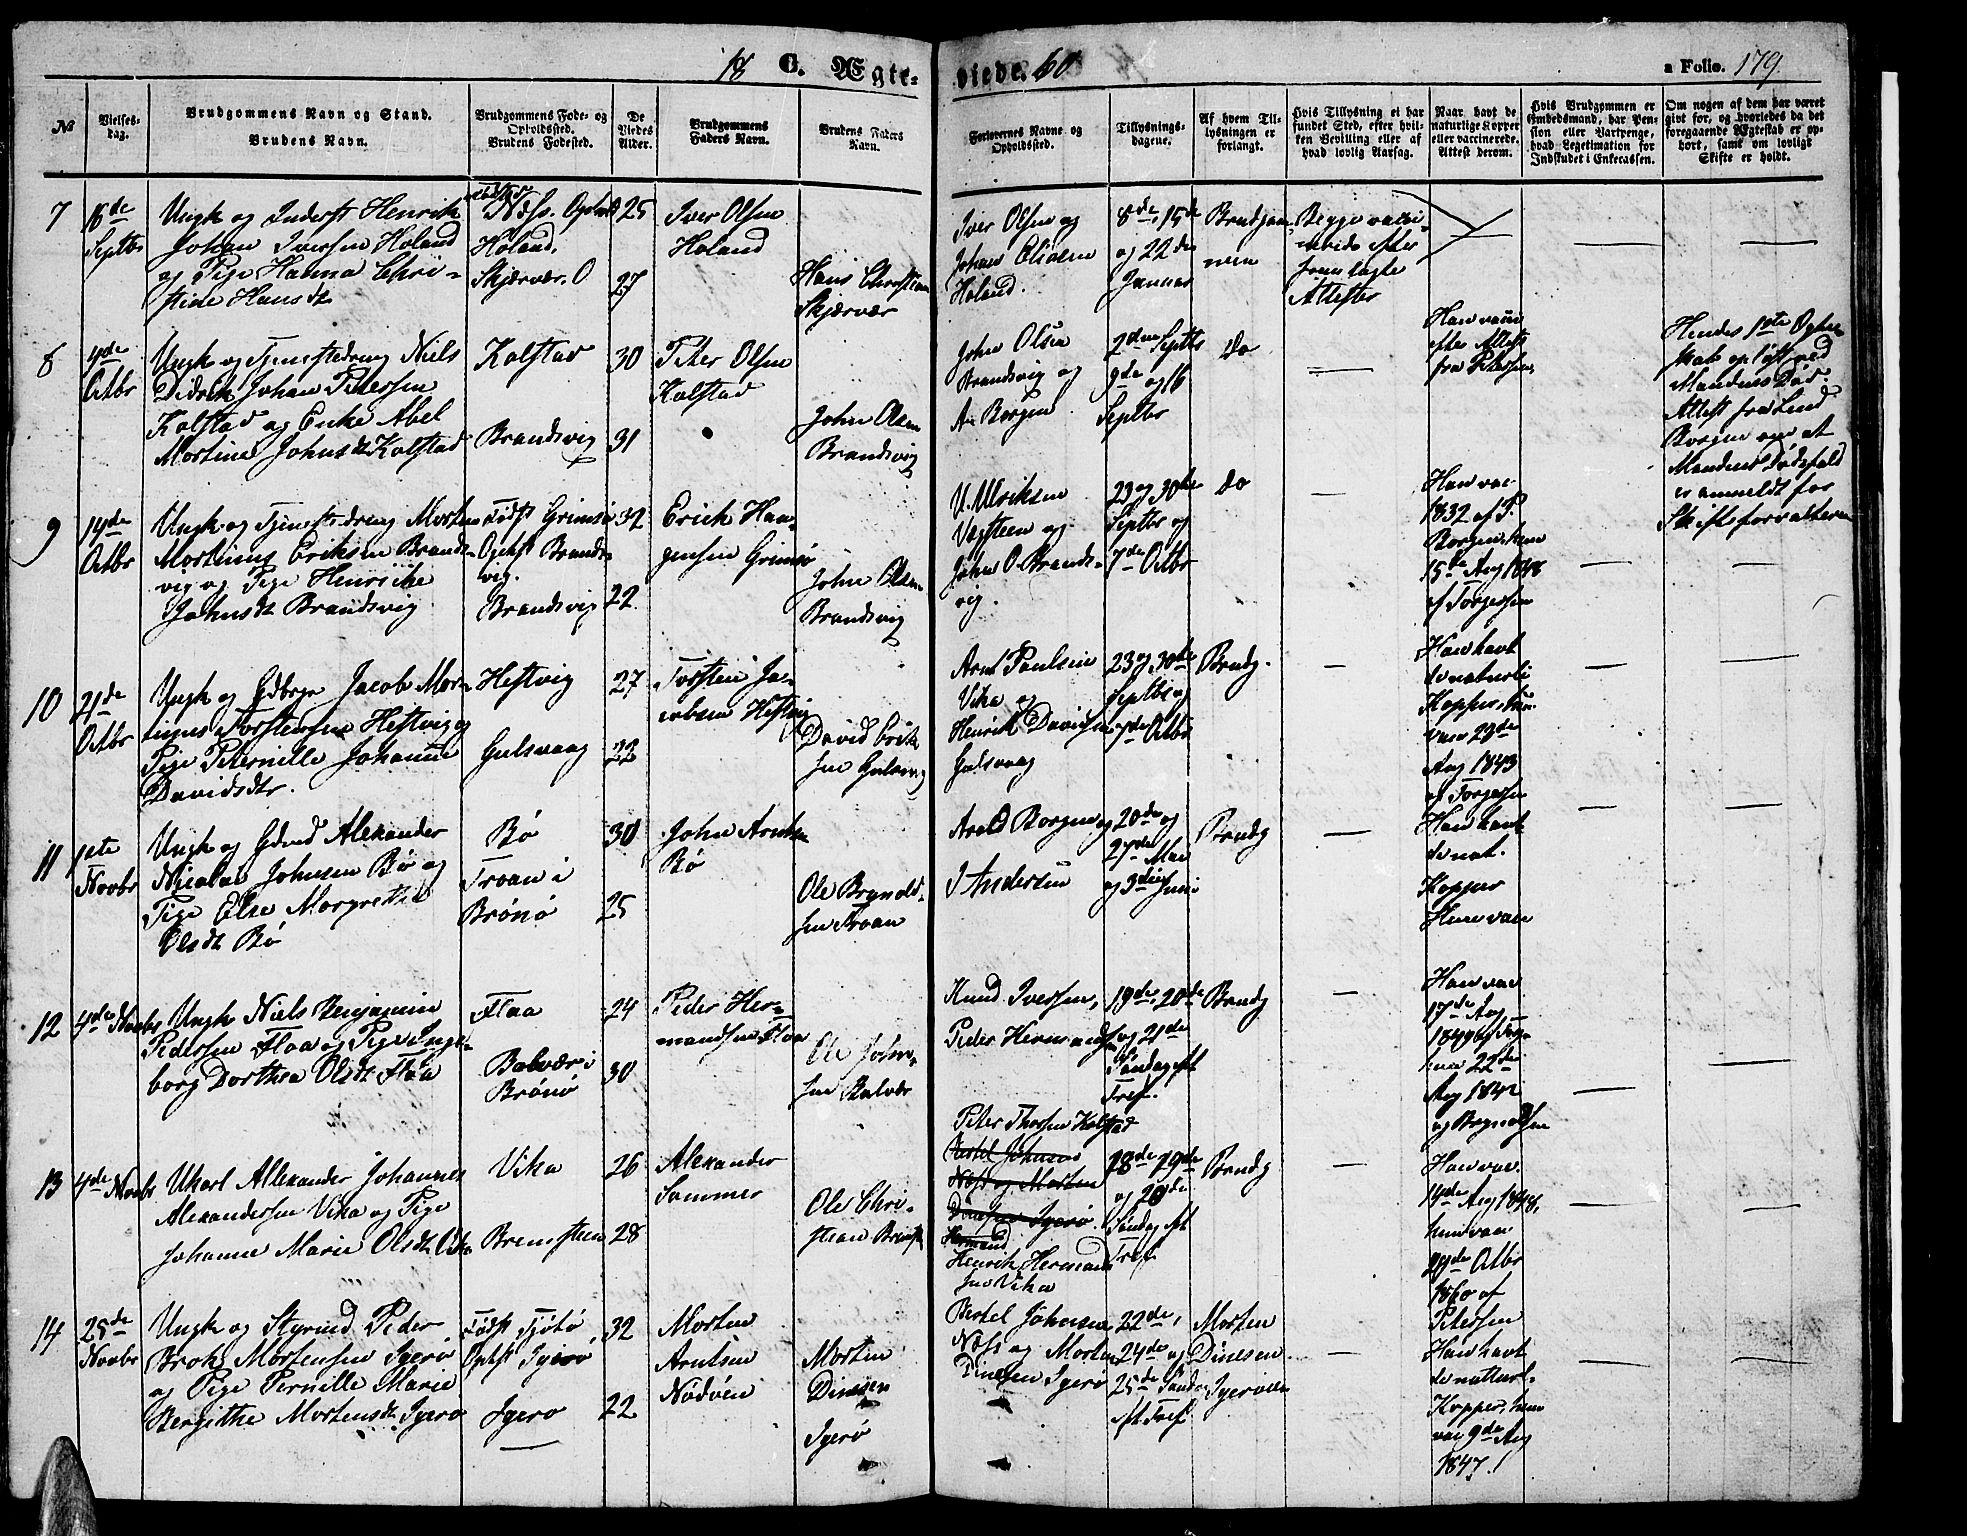 18 C. Ægte-
viede. 60
a Folio. 179
№
Vielses-
dag.
Brudgommens Navn og Stand.
Brudens Navn.
Brudgommens Føde- og
Opholdssted.
Brudens Fødested.
De
Viedes
Alder.
Brudgommens
Faders Navn.
Brudens Faders
Navn.
Forlovernes Navne og
Opholdssted.
Tillysnings-
dagene.
Af hvem Til-
lysningen er
forlangt.
Hvis Tillysning ei har
fundet Sted, efter hvil-
ken Bevilling eller af
hvad lovlig Aarsag.
Naar havt de
naturlige Kopper
eller vaccinerede.
Attest derom.
Hvis Brudgommen er
Embedsmand, har Pen-
sion eller Vartpenge,
hvad Legitimation for
Indskudet i Enkecassen.
Om nogen af dem har været
givt før, og hvorledes da det
foregaaende Ægteskab er op-
hørt, samt om lovligt
Skifte er holdt.
7
16de
Septbr
Ungk og Inderst Henrik
Johan Iversen Holand
og Pige Hanna Chri-
stine Hansdt
Næss.
Holand.
Skjærvær. O
25
27
Iver Olsen
Holand
Hans Christian
Skjærvær
Iver Olsen og
Johan
Holand.
8de, 15de
og 22de
Januar
Brudgom-
men
Begge vacci-
nerede efter
fremlagte
Attester
8
Octbr
Ungk og Tjenestedreng Niels
Didrik Johan Petersen
Kolstad og Enke Abel
Martine Johnsdt Kolstad
Kolstad
Brandsvig
30
31
Peter Olsen
Kolstad
John Olsen
Brandsvig
John Olsen
Brandsvig og
A. Borgen
2den Septbr
9de og 16
Septbr
Do
Han vacc
efter Attest
fra Petersen
Hendes 1ste Ægte-
skab opløst ved
Mandens Død.
Attest fra Lend
Borgen om at
Mandens Dødsfald
er anmeldt for
Skifteforvalteren
9
14de
Octbr
Ungk og Tjenestedreng Morten
Martinus Eriksen Brands-
vig og Pige Henrikke
Johnsdt Brandsvig
Født Grimsø
Ophst Brands-
vig.
Brandsvig
32
22
Erick Han-
gensen Grimsø
John Olsen
Brandsvig
U. Ulriksen
og
John O. Brands-
vig.
23 og 30te
Septbr og
7de Octbr
Do
Han vac
1832 af P.
Borgen, hun
15de Aug 1848
af Torgersen
10
21de
Octbr
Ungk og Gdbrgr Jacob Mar-
tinus Torstensen Heftvig og
Pige Peternille Johanne
Davidsdtr.
Heftvig
Gulsvaag
27
22
Torsten Ja-
cobsen Heftvig
David Erik
sen Gulsvaag
Arnt Paulsen
Vika og
Henrik Davidsen
Gulsvaag
23 og 30te
Septbr og
7de Octbr
Brudg.
Han havt
de naturli
Kopper, hun
vacc 29de
Aug 1843
af Torgersen
11
1ste
Novbr
Ungk og Alexander
Nicolai Johnsen Bø og
Pige Else Margrethe
Olsdt Bø
Bø
Troan i
Brønø
30
25
John Arntsen
Bø
Ole
sen Troan
Arnt Borgen og
J Andersen
20de og
27de Mai
og 3die Juni
Brudg
Han havt
de nat.
Kopper
Hun vacc
12
4de Novbr
Ungk Niels Benjamin
Pedersen Floa og Pige Inge-
borg Dorthea Olsdt Floa
Floa
Balvær i
Brønø
24
30
Peder Her-
mandsen Floa
Ole John-
sen Balvær
Knud Iversen,
Peder Hermandsen
19de, 20de
og 21de
Søndag eft
Tref.
Brudg
Han vac
17de Aug
1849 af Torge
hun 22de
Aug 1842
13
4de Novbr
Alexander Johannes
Alexandersen Vika og Pige
Johanne Marie Olsdt Vika
Vika
Bremsteen
26
28
Alexander
Sommer
Ole Chri-
stian Bremst
Peter Thorsen Kolstad
Bertel Johnsen
Næss og Morten
Dinesen Igerø.
Hermand
Henrik Hermand
sen Vika
18de 19de
og 20de
Søndag eft
Tref
Brudg
Han vac.
14de Aug 1848,
hun vacc
24de Octbr
1860 af
Petersen
14
25de
Novbr
Ungk og Styrmd Peder
Brok Mortensen Igerø
og Pige Pernille Marie
Bergithe Mortensdt Igerø
Født Tjøtø
Ophst Igerø
Igerø
32
22
Morten
Arntsen
Nødøen
Morten
Dinesen
Igerø
Bertel Johnsen
Næss og Morten
Dinesen Igerø
22de,
24de og
25de Sønda
eft Tref.
Morten
Dinesen
Igerøen
Han havt
de naturl.
Kopper, hun
vac 9de Aug
1847.